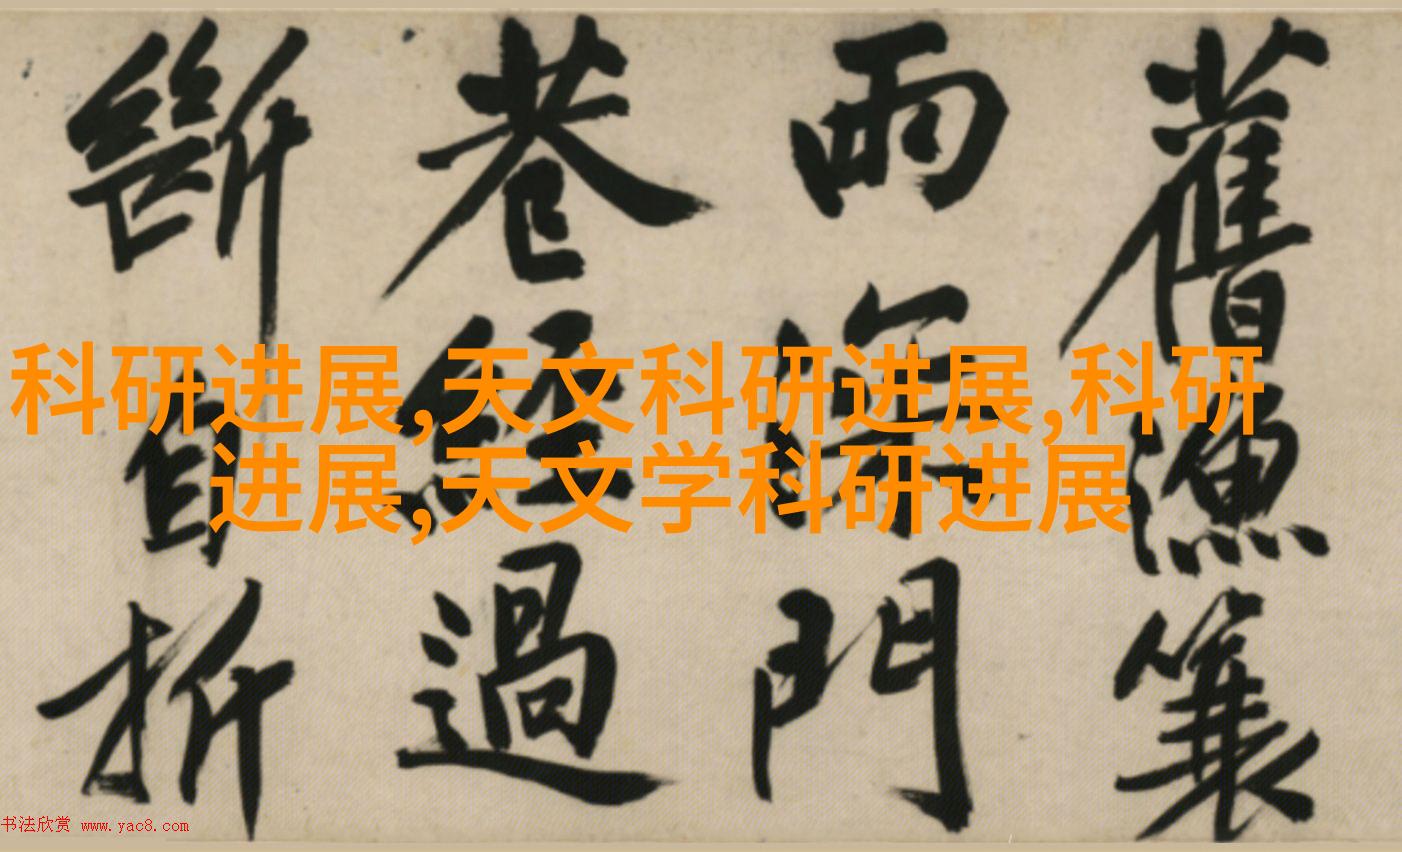 舊漁簑
雨深門
巷經過
斷自折
科研进展,天文科研进展,科研
进展,天文学科研进展
书法欣赏 www.yac8.com